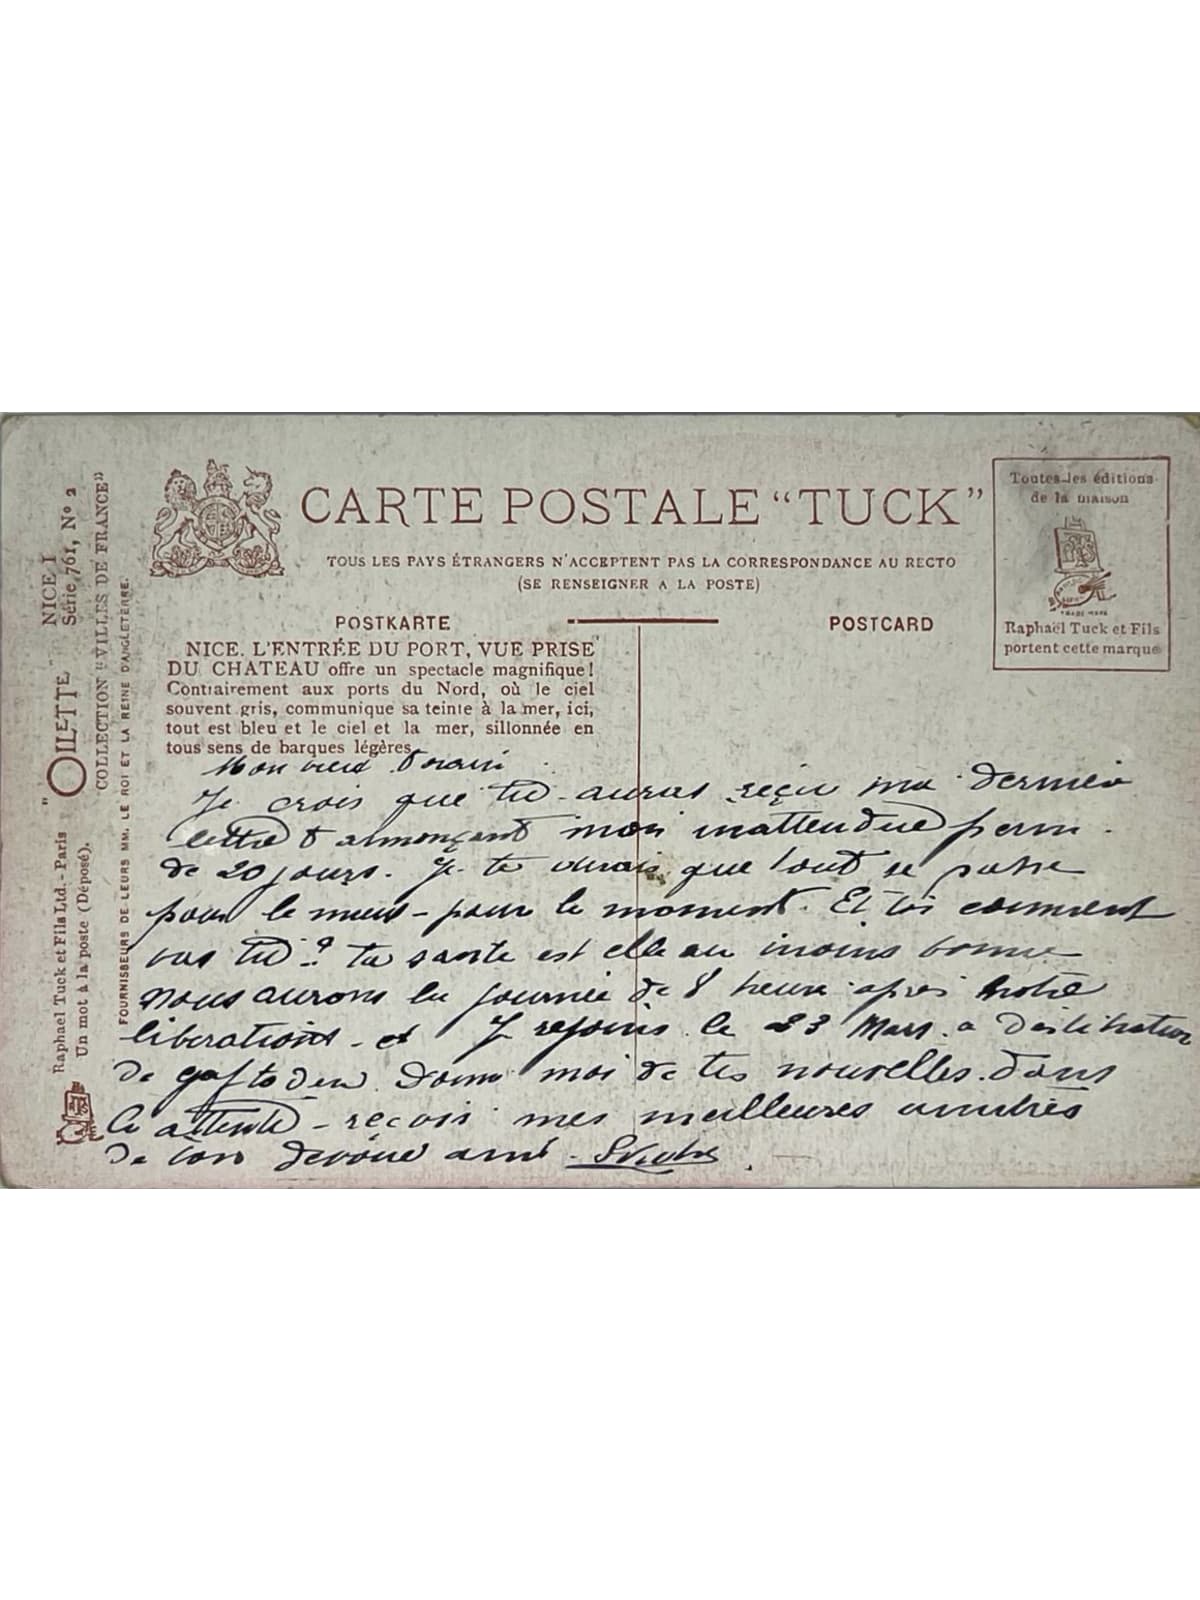 CARTE POSTALE “TUCK”
TOUS LES PAYS ÉTRANGERS N'ACCEPTENT PAS LA CORRESPONDANCE AU RECTO
(SE RENSEIGNER A LA POSTE)
POSTKARTE
POSTCARD
Toutes les éditions
de la maison
TRADE MARK
Raphaël Tuck et Fils
portent cette marque
"OILETTE" NICE I
Série 761, Nº 2
COLLECTION "VILLES DE FRANCE"
Raphael Tuck et Fils Ltd. - Paris
Un mot à la poste (Déposé).
FOURNISSEURS DE LEURS MM. LE ROI ET LA REINE D'ANGLETERRE.
NICE. L'ENTRÉE DU PORT, VUE PRISE
DU CHATEAU offre un spectacle magnifique!
Contrairement aux ports du Nord, où le ciel
souvent gris, communique sa teinte à la mer, ici,
tout est bleu et le ciel et la mer, sillonnée en
tous sens de barques légères.
Mon vieux
Je crois que tu auras reçu ma dernière
lettre t annonçant mon inattendue perm.
de 20 jours. Je te disais que tout se passe
pour le mieux - pour le moment. Et toi comment
vas tu ? ta sante est elle au moins bonne
nous aurons la journée de 8 heure apres notre
liberation - et Je rejoins le 23 Mars a
de Donne moi de tes nouvelles. dans
l'attente - reçois mes meilleures amitiés
de ton dévoué ami -